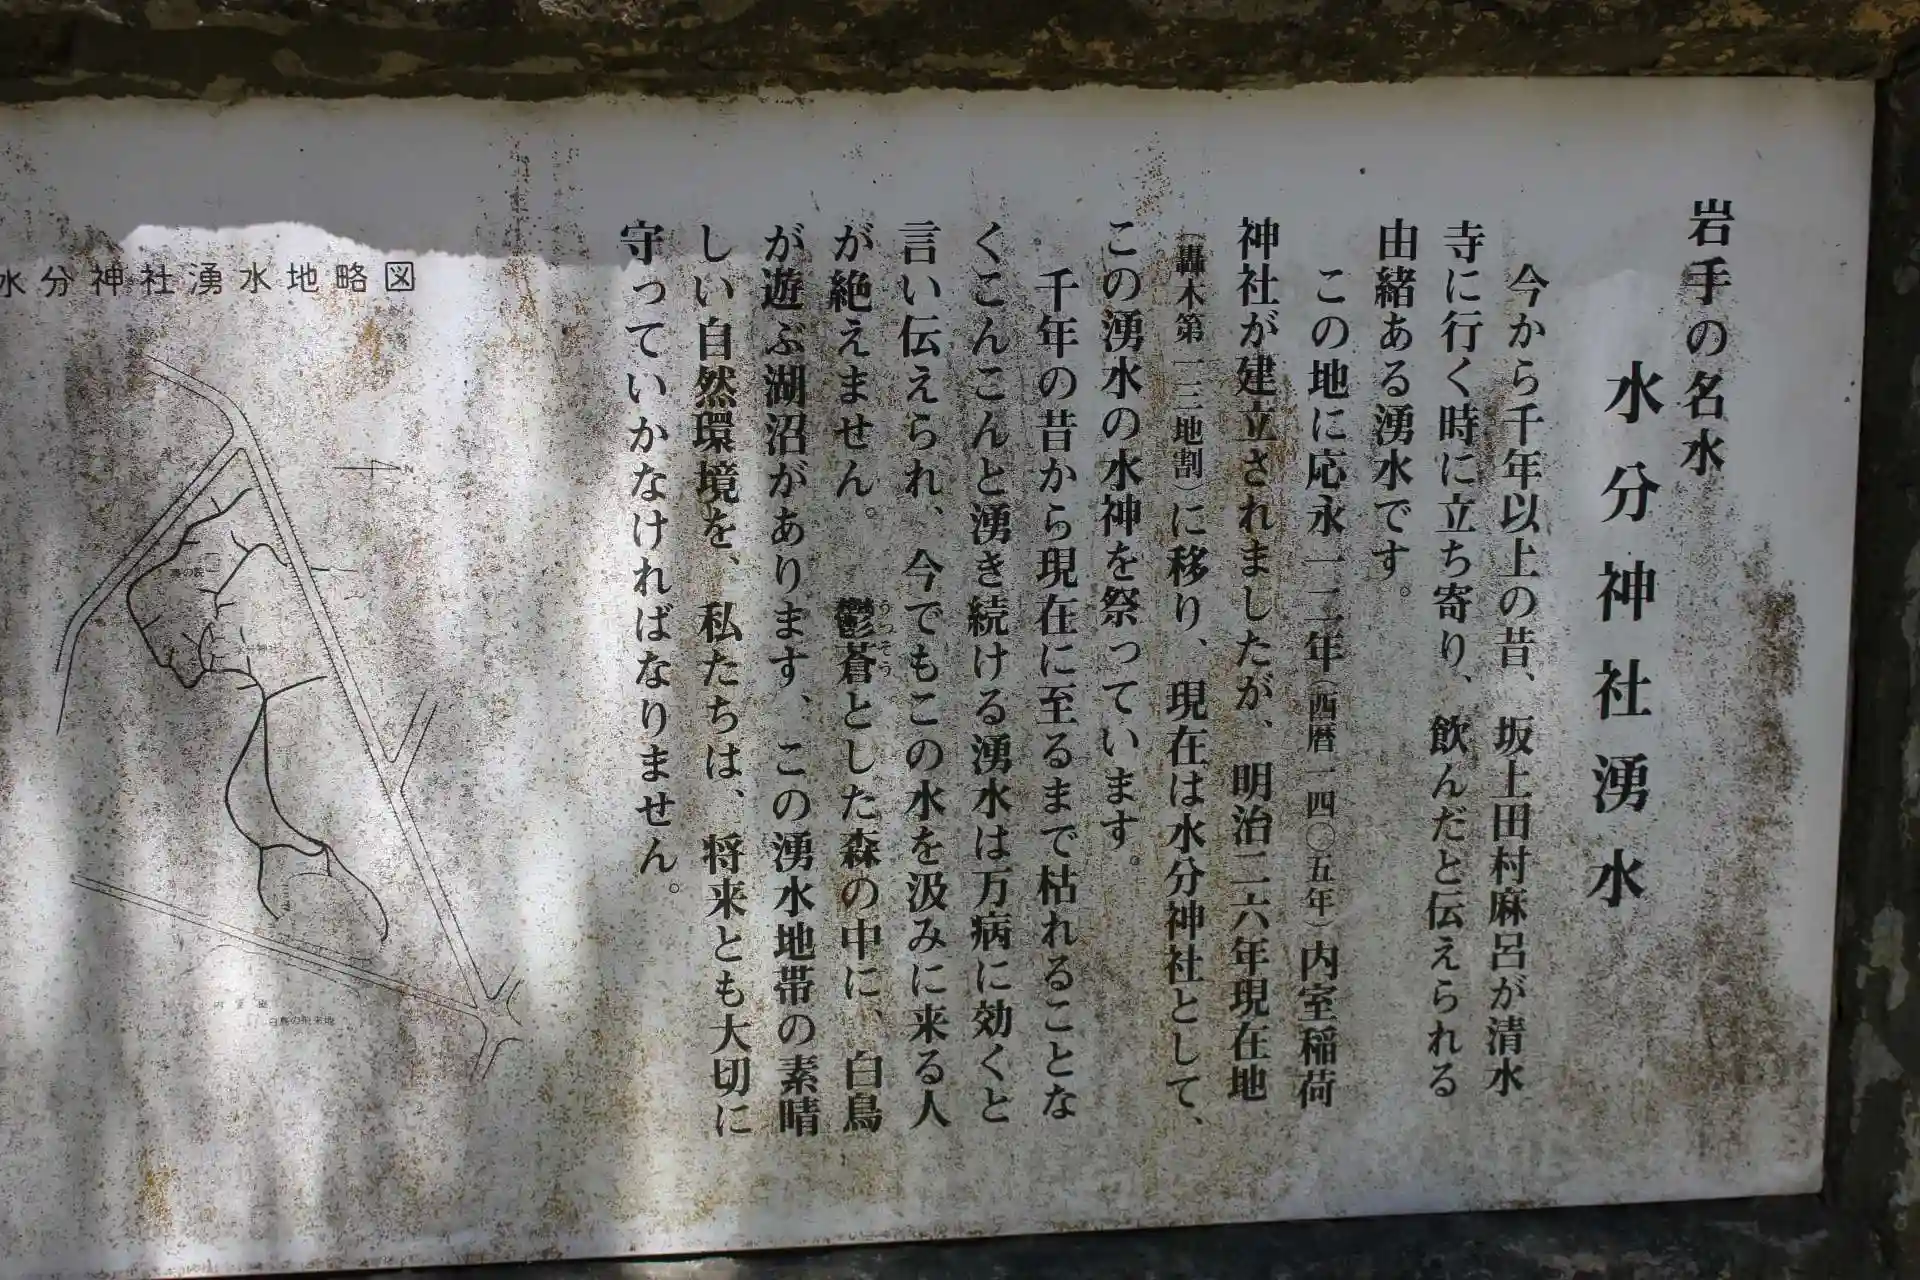 岩手の名水
水分神社湧水
今から千年以上の昔、坂上田村麻呂が清水
寺に行く時に立ち寄り、飲んだと伝えられる
由緒ある湧水です。
この地に応永一二年(西暦一四〇五年)内室稲荷
神社が建立されましたが、明治二六年現在地
(轟木第一三地割)に移り、現在は水分神社として、
この湧水の水神を祭っています。
千年の昔から現在に至るまで枯れることな
くこんこんと湧き続ける湧水は万病に効くと
言い伝えられ、今でもこの水を汲みに来る人
が絶えません。 鬱蒼とした森の中に、白鳥
うっそう
が遊ぶ湖沼があります、この湧水地帯の素晴
しい自然環境を、私たちは、将来とも大切に
守っていかなければなりません。
水分神社湧水地略図
N
白鳥の飛来地